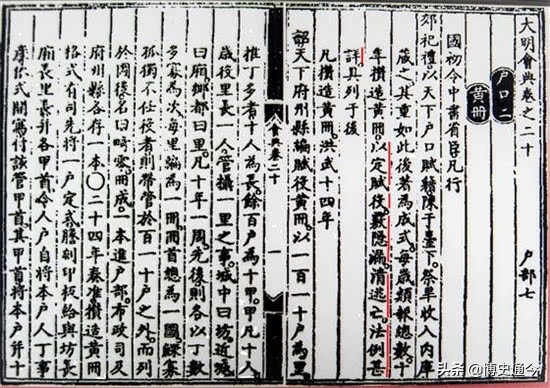 大明會典卷之二十
戶口二
戶部七
黃冊
國初令中書省臣凡行
郊祀禮以天下戶口賦籍陳于臺下祭畢收入內庫
藏之其重如此後著為成式每歲類報總數十
年攢造黃冊以定賦役覈隱漏清逃亡法例甚
詳具列于後
凡攢造黃冊洪武十四年
詔天下府州縣編賦役黃冊以一百一十戶為里
會典卷二十
一
推丁多者十人為長餘百戶為十甲甲凡十人
歲役里長一人管攝一里之事城中曰坊近城
曰廂鄉都曰里凡十年一周先後則各以丁數
多寡為次每里編為一冊冊首總為一圖鰥寡
孤獨不任役者則帶管於百一十戶之外而列
於圖後名曰畸零冊成一本進戶部布政司及
府州縣各存一本〇二十四年奏准攢造黃冊
格式有司先將一戶定式謄刻印板給與坊長
廂長里長并各甲首令人戶自將本戶人丁事
產依式開寫付該管甲首其甲首將本戶并十
头条 @博史通今